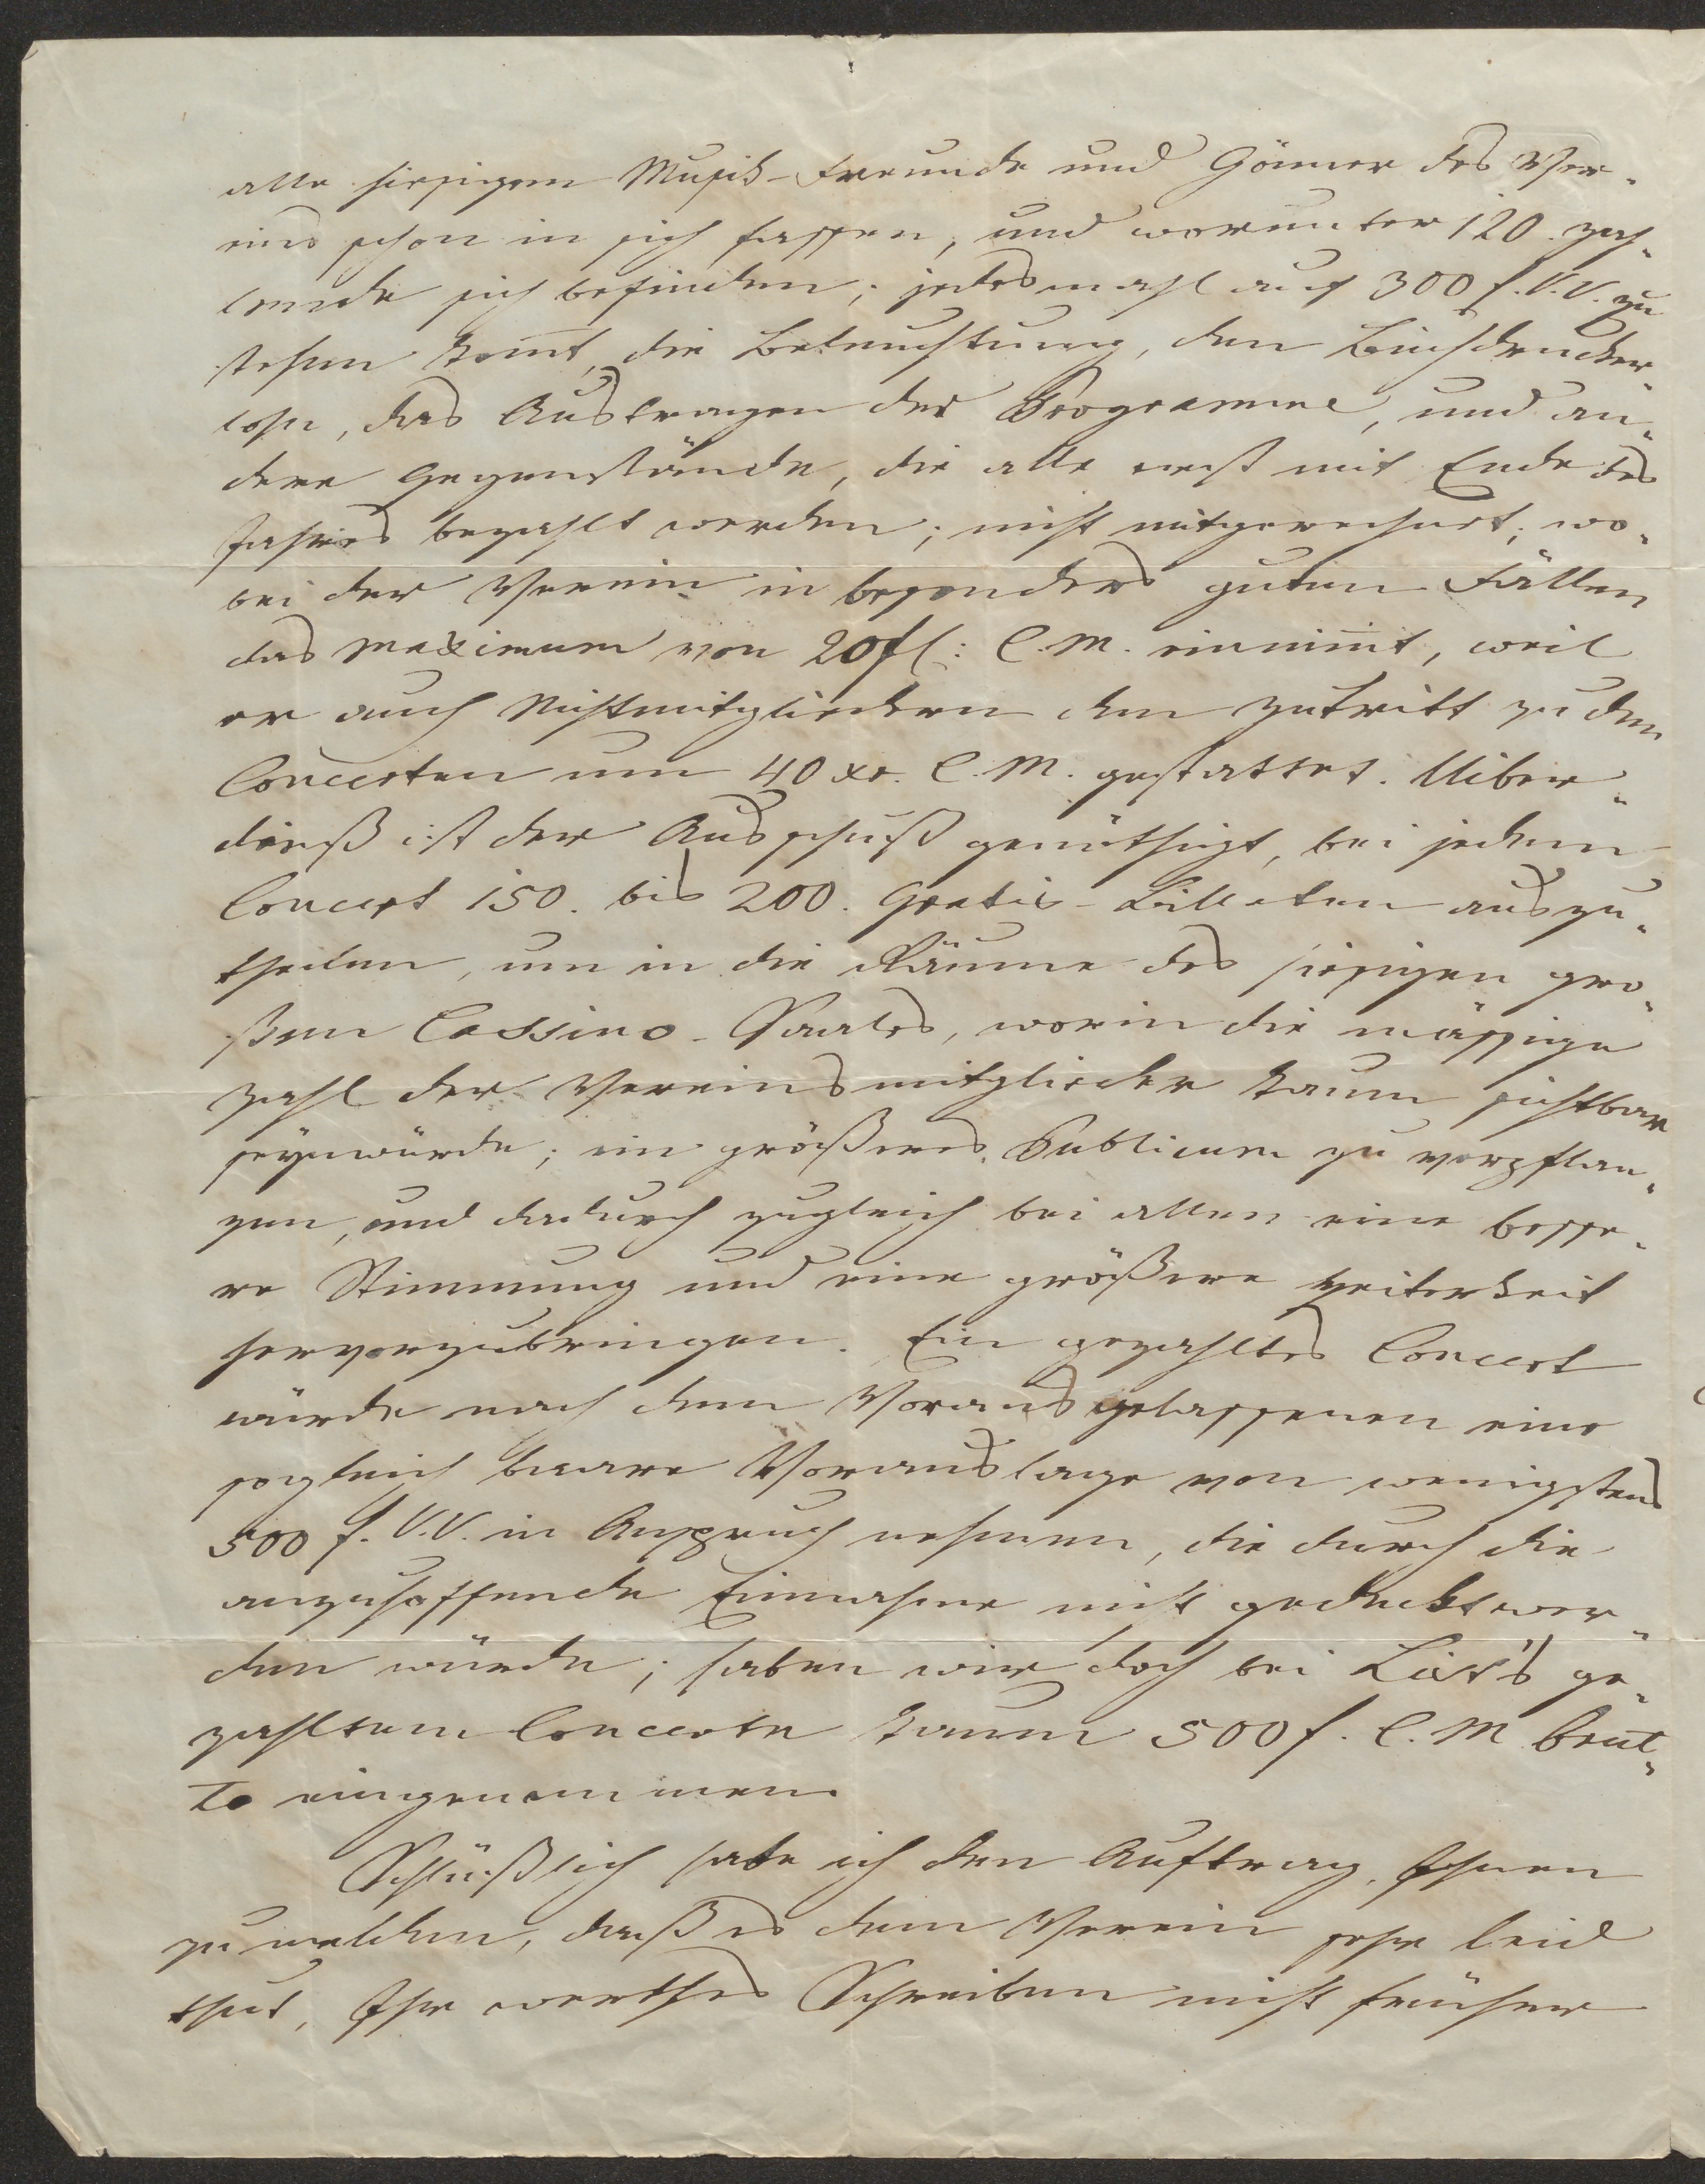 alle hiesigen Musik-Freunde und Gönner des Ver-
eins schon in sich fassen, und worunter 120. zah-
lende sich befinden; jedesmahl auf 300 f. V.V. zu
stehen kom̄t, die Beleuchtung, den Buchdrucker-
lohn, das Austragen der Programme, und an-
dere Gegenstände, die alle erst mit Ende des
Jahres bezahlt werden; nicht mitgerechnet; wo-
bei der Verein in besonders guten Fällen
das Maximum von 20 fl: C.M. einnim̄t, weil
er auch Nichtmitgliedern den Zutritt zu den
Concerten um 40 xr. C.M. gestattet. Uiber-
dieß ist der Ausschuß genöthigt, bei jedem
Concert 150. bis 200. Gratis-Billeten auszu-
theilen, um in die Räume des hiesigen gro-
ßen Cassino-Saales, worin die mässige
Zahl der Vereinsmitglieder kaum sichtbar
seyn würde; ein größeres Publicum zu verpflan-
zen, und dadurch zugleich bei allen eine besse-
re Stimmung und eine größere Heiterkeit
hervorzubringen. Ein gezahltes Concert
würde nach dem Vorausgelassenen eine
sogleich baare Vorauslage von wenigstens
500 f. V.V. in Anspruch nehmen, die durch die
anzuhoffende Einnahme nicht gedeckt wer-
den würde; haben wir doch bei List's ge-
zahltem Concerte kaum 500 f. C.M. brut-
to eingenommen.
Schlüßlich habe ich den Auftrag, Ihnen
zu melden, daß es dem Verein sehr leid
thut, Ihr werthes Schreiben nicht früher